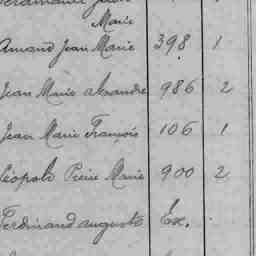 Marie
Amand Jean Marie 398 1
Jean Marie alexandre 986 2
Jean Marie François 106 1
Léopold Pierre Marie 900 2
Ferdinand auguste Ex.